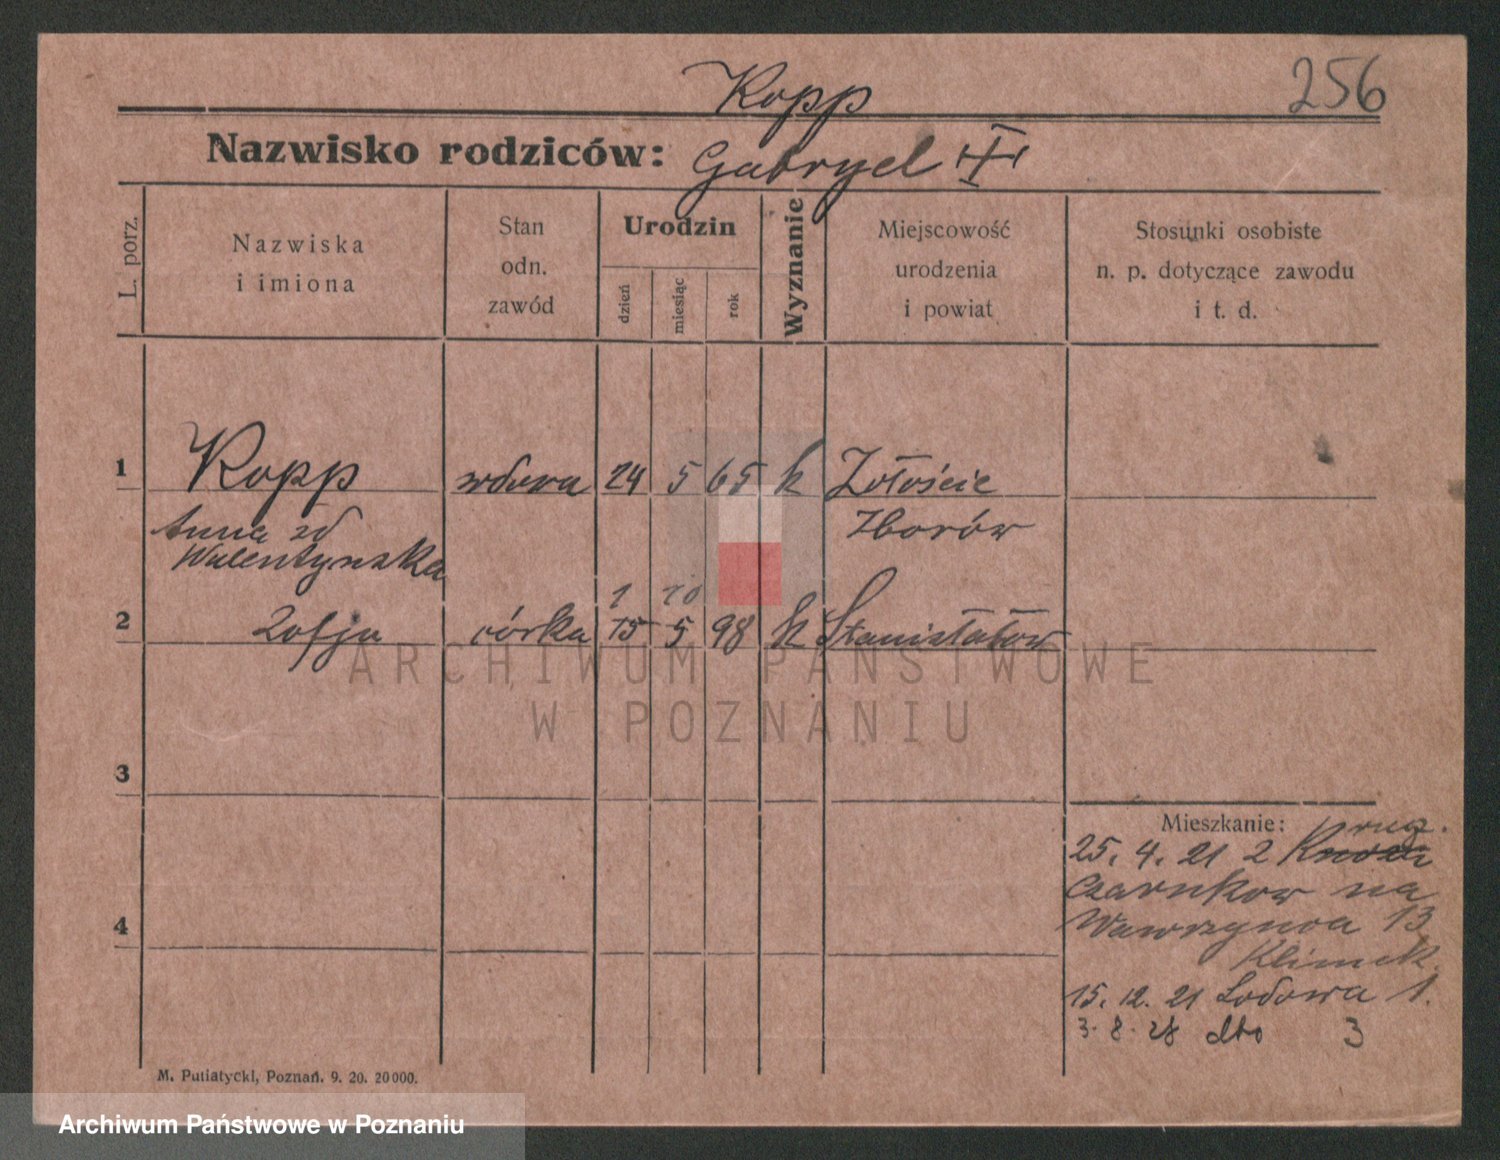 256
Kopp
Nazwisko rodziców: Gabryel
L. porz.
Nazwiska
i imiona
Stan
odn.
zawód
Urodzin
dzień
miesiąc
rok
Wyznanie
Miejscowość
urodzenia
i powiat
Stosunki osobiste
n. p. dotyczące zawodu
i t. d.
1 Kopp wdowa 24 5 65 k Zołoście
Anna zd Zborów
Walentynska
1 10
2 Zofja córka 15 5 98 k Stanisławow
3
Mieszkanie:
25. 4. 21 z
Czarnkow na
4 Wawrzynca 13
Klimek
15. 12. 21 Lodowa 1.
3. 8. 28 dto 3
M. Putiatycki, Poznań. 9. 20. 20000.
ARCHIWUM PAŃSTWOWE
W POZNANIU
Archiwum Państwowe w Poznaniu